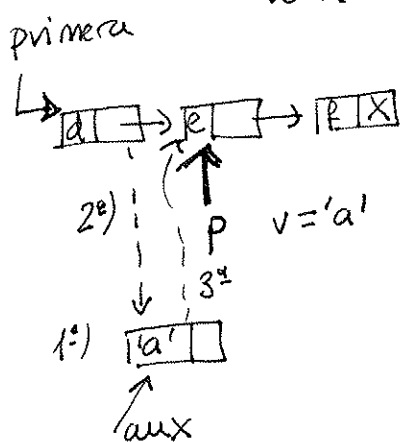 primera
d e f X
2º)
P v='a'
3º
1º) 'a'
aux